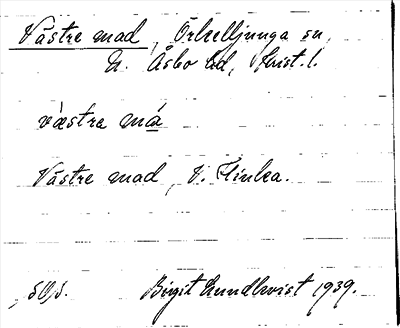 Västre mad, Örkelljunga sn,
N. Åsbo hd, Krist. l.
västra má
Västre mad, V. Flinka.
Birgit Lundkvist 1939.